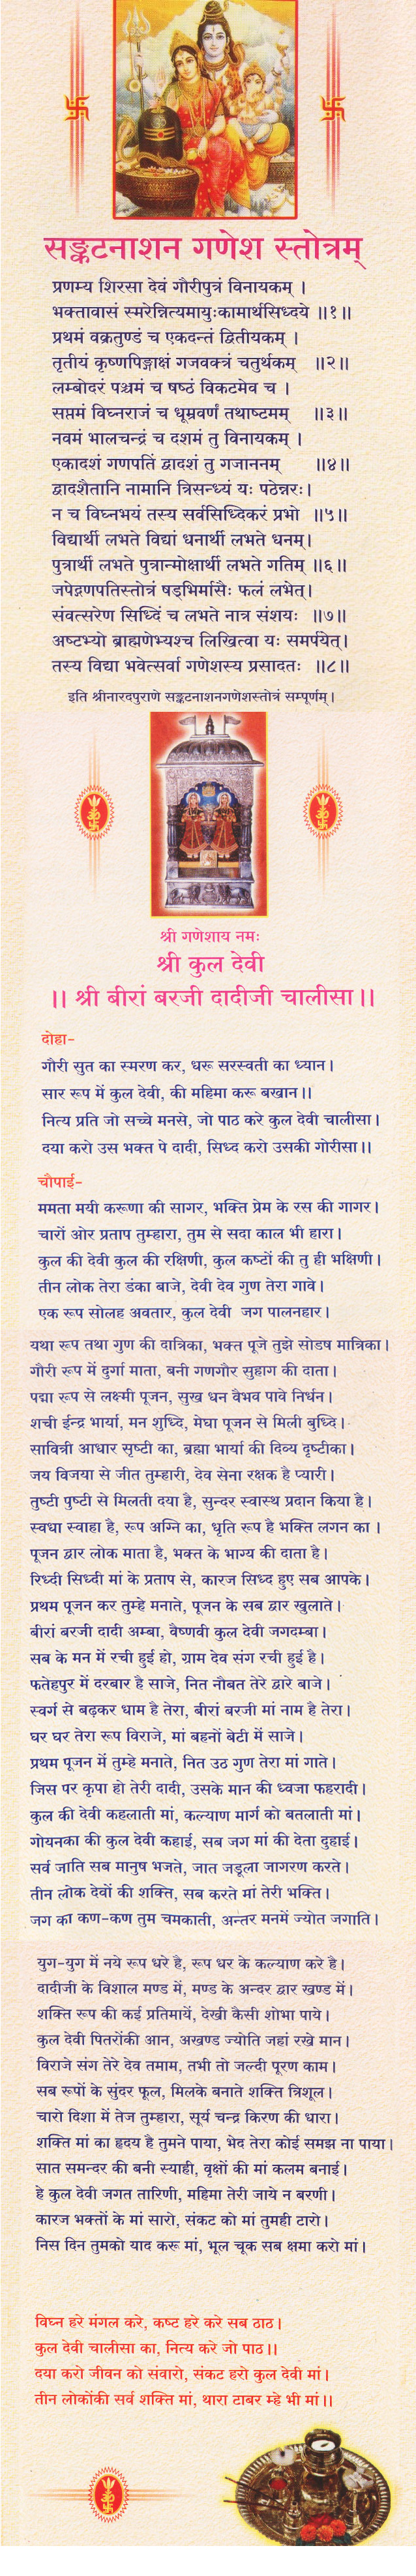 सङ्कटनाशन गणेश स्तोत्रम्
प्रणम्य शिरसा देवं गौरीपुत्रं विनायकम् ।
भक्तावासं स्मरेन्नित्यमायुःकामार्थसिध्दये ॥१॥
प्रथमं वक्रतुण्डं च एकदन्तं द्वितीयकम् ।
तृतीयं कृष्णपिङ्गाक्षं गजवक्त्रं चतुर्थकम् ॥२॥
लम्बोदरं पञ्चमं च षष्ठं विकटमेव च ।
सप्तमं विघ्नराजं च धूम्रवर्णं तथाष्टमम् ॥३॥
नवमं भालचन्द्रं च दशमं तु विनायकम् ।
एकादशं गणपतिं द्वादशं तु गजाननम् ॥४॥
द्वादशैतानि नामानि त्रिसन्ध्यं यः पठेन्नरः।
न च विघ्नभयं तस्य सर्वसिध्दिकरं प्रभो ॥५॥
विद्यार्थी लभते विद्यां धनार्थी लभते धनम्।
पुत्रार्थी लभते पुत्रान्मोक्षार्थी लभते गतिम् ॥६॥
जपेद्गणपतिस्तोत्रं षड्भिर्मासैः फलं लभेत्।
संवत्सरेण सिध्दिं च लभते नात्र संशयः ॥७॥
अष्टभ्यो ब्राह्मणेभ्यश्च लिखित्वा यः समर्पयेत्।
तस्य विद्या भवेत्सर्वा गणेशस्य प्रसादतः ॥८॥
इति श्रीनारदपुराणे सङ्कटनाशनगणेशस्तोत्रं सम्पूर्णम्।
श्री गणेशाय नमः
श्री कुल देवी
।। श्री बीरां बरजी दादीजी चालीसा ।।
दोहा-
गौरी सुत का स्मरण कर, धरू सरस्वती का ध्यान।
सार रूप में कुल देवी, की महिमा करू बखान।।
नित्य प्रति जो सच्चे मनसे, जो पाठ करे कुल देवी चालीसा।
दया करो उस भक्त पे दादी, सिध्द करो उसकी गोरीसा।।
चौपाई-
ममता मयी करूणा की सागर, भक्ति प्रेम के रस की गागर।
चारों ओर प्रताप तुम्हारा, तुम से सदा काल भी हारा।
कुल की देवी कुल की रक्षिणी, कुल कष्टों की तु ही भक्षिणी।
तीन लोक तेरा डंका बाजे, देवी देव गुण तेरा गावे।
एक रूप सोलह अवतार, कुल देवी जग पालनहार।
यथा रूप तथा गुण की दात्रिका, भक्त पूजे तुझे सोडष मात्रिका।
गौरी रूप में दुर्गा माता, बनी गणगौर सुहाग की दाता।
पद्मा रूप से लक्ष्मी पूजन, सुख धन वैभव पावे निर्धन।
शची ईन्द्र भार्या, मन शुध्दि, मेघा पूजन से मिली बुध्दि।
सावित्री आधार सृष्टी का, ब्रह्मा भार्या की दिव्य दृष्टीका।
जय विजया से जीत तुम्हारी, देव सेना रक्षक है प्यारी।
तुष्टी पुष्टी से मिलती दया है, सुन्दर स्वास्थ प्रदान किया है।
स्वधा स्वाहा है, रूप अग्नि का, धृति रूप है भक्ति लगन का ।
पूजन द्वार लोक माता है, भक्त के भाग्य की दाता है।
रिध्दी सिध्दी मां के प्रताप से, कारज सिध्द हुए सब आपके।
प्रथम पूजन कर तुम्हे मनाते, पूजन के सब द्वार खुलाते।
बीरां बरजी दादी अम्बा, वैष्णवी कुल देवी जगदम्बा।
सब के मन में रची हुई हो, ग्राम देव संग रची हुई है।
फतेहपुर में दरबार है साजे, नित नौबत तेरे द्वारे बाजे।
स्वर्ग से बढ़कर धाम है तेरा, बीरां बरजी मां नाम है तेरा।
घर घर तेरा रूप विराजे, मां बहनों बेटी में साजे।
प्रथम पूजन में तुम्हे मनाते, नित उठ गुण तेरा मां गाते।
जिस पर कृपा हो तेरी दादी, उसके मान की ध्वजा फहरादी।
कुल की देवी कहलाती मां, कल्याण मार्ग को बतलाती मां।
गोयनका की कुल देवी कहाई, सब जग मां की देता दुहाई।
सर्व जाति सब मानुष भजते, जात जडूला जागरण करते।
तीन लोक देवों की शक्ति, सब करते मां तेरी भक्ति।
जग का कण-कण तुम चमकाती, अन्तर मनमें ज्योत जगाति।
युग-युग में नये रूप धरे है, रूप धर के कल्याण करे है।
दादीजी के विशाल मण्ड में, मण्ड के अन्दर द्वार खण्ड में।
शक्ति रूप की कई प्रतिमायें, देखी कैसी शोभा पाये।
कुल देवी पितरोंकी आन, अखण्ड ज्योति जहां रखे मान।
विराजे संग तेरे देव तमाम, तभी तो जल्दी पूरण काम।
सब रूपों के सुंदर फूल, मिलके बनाते शक्ति त्रिशूल।
चारो दिशा में तेज तुम्हारा, सूर्य चन्द्र किरण की धारा।
शक्ति मां का हृदय है तुमने पाया, भेद तेरा कोई समझ ना पाया।
सात समन्दर की बनी स्याही, वृक्षों की मां कलम बनाई।
हे कुल देवी जगत तारिणी, महिमा तेरी जाये न बरणी।
कारज भक्तों के मां सारो, संकट को मां तुमही टारो।
निस दिन तुमको याद करू मां, भूल चूक सब क्षमा करो मां।
विघ्न हरे मंगल करे, कष्ट हरे करे सब ठाठ।
कुल देवी चालीसा का, नित्य करे जो पाठ।।
दया करो जीवन को संवारो, संकट हरो कुल देवी मां।
तीन लोकोंकी सर्व शक्ति मां, थारा टाबर म्हे भी मां।।